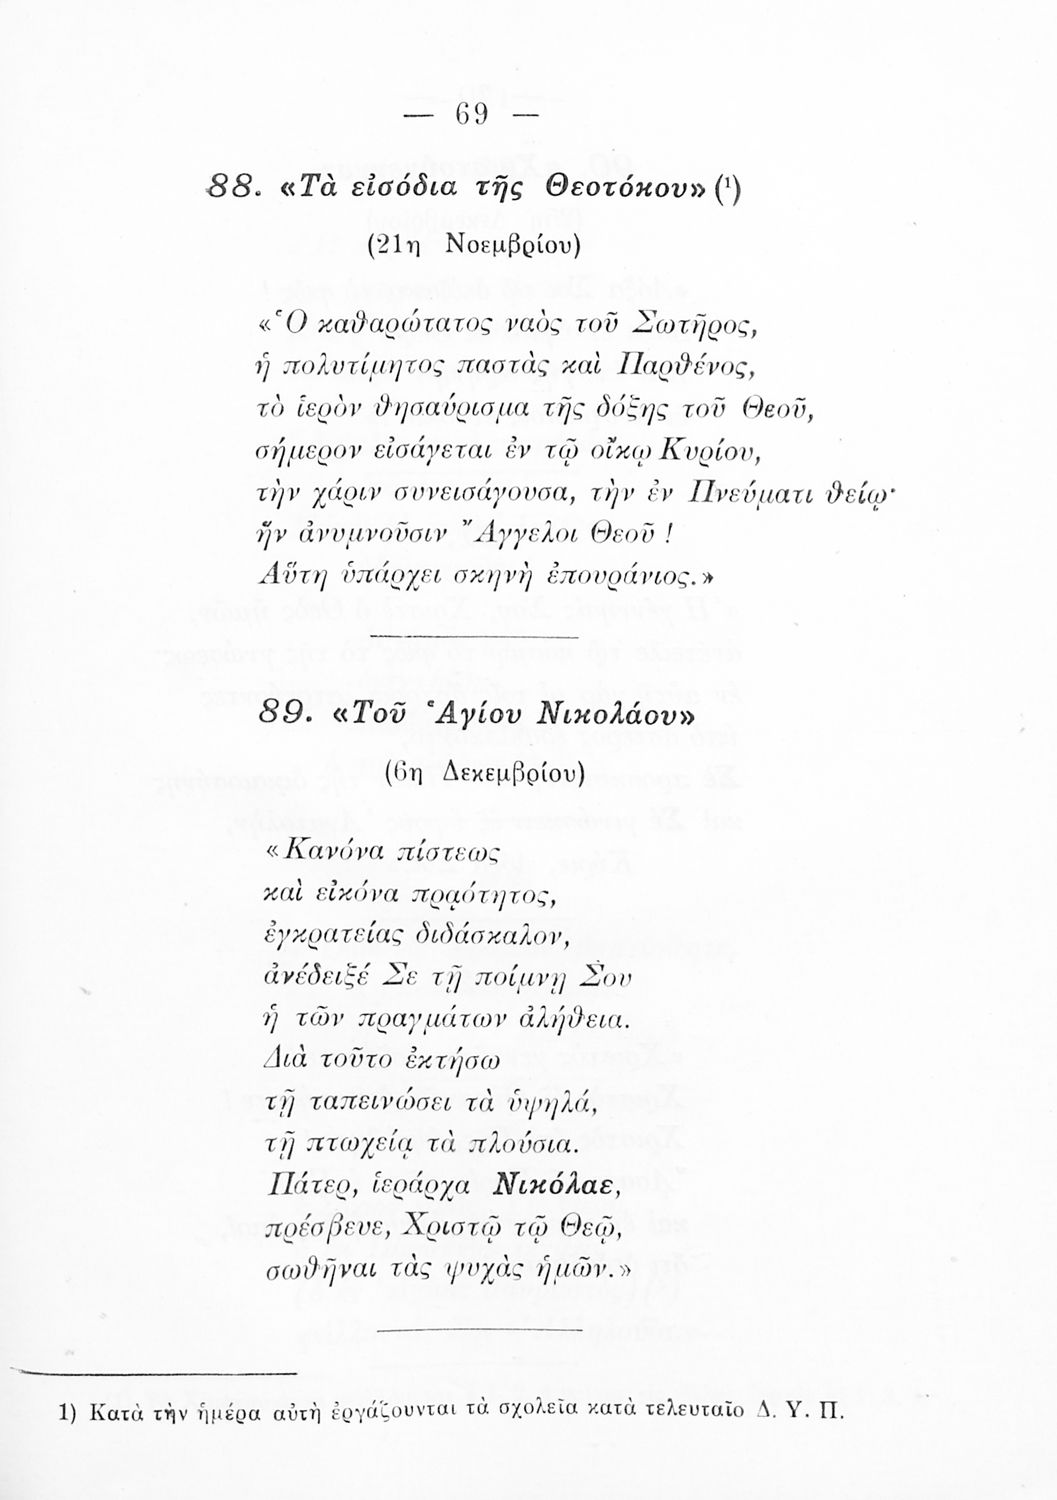 — 69 —
88. «Τὰ εἰσόδια τῆς Θεοτόκου» (¹)
(21η Νοεμβρίου)
«Ὁ καθαρώτατος ναὸς τοῦ Σωτῆρος,
ἡ πολυτίμητος παστὰς καὶ Παρθένος,
τὸ ἱερὸν θησαύρισμα τῆς δόξης τοῦ Θεοῦ,
σήμερον εἰσάγεται ἐν τῷ οἴκῳ Κυρίου,
τὴν χάριν συνεισάγουσα, τὴν ἐν Πνεύματι θείῳ·
ἥν ἀνυμνοῦσιν Ἄγγελοι Θεοῦ !
Αὕτη ὑπάρχει σκηνὴ ἐπουράνιος.»
89. «Τοῦ Ἁγίου Νικολάου»
(6η Δεκεμβρίου)
«Κανόνα πίστεως
καὶ εἰκόνα πρᾳότητος,
ἐγκρατείας διδάσκαλον,
ἀνέδειξέ Σε τῇ ποίμνῃ Σου
ἡ τῶν πραγμάτων ἀλήθεια.
Διὰ τοῦτο ἐκτήσω
τῇ ταπεινώσει τὰ ὑψηλά,
τῇ πτωχείᾳ τὰ πλούσια.
Πάτερ, ἱεράρχα Νικόλαε,
πρέσβευε, Χριστῷ τῷ Θεῷ,
σωθῆναι τὰς ψυχὰς ἡμῶν.»
1) Κατὰ τὴν ἡμέρα αὐτὴ ἐργάζουνται τὰ σχολεῖα κατὰ τελευταῖο Δ. Υ. Π.